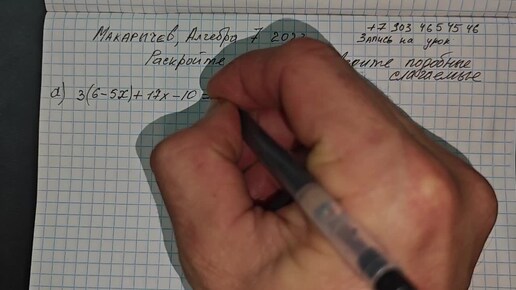 Макаричев, Алгебра 7
+7 903 465 45 46
Запись на урок
Раскройте подобные
слагаемые
а) 3(6-5x)+17x-10=